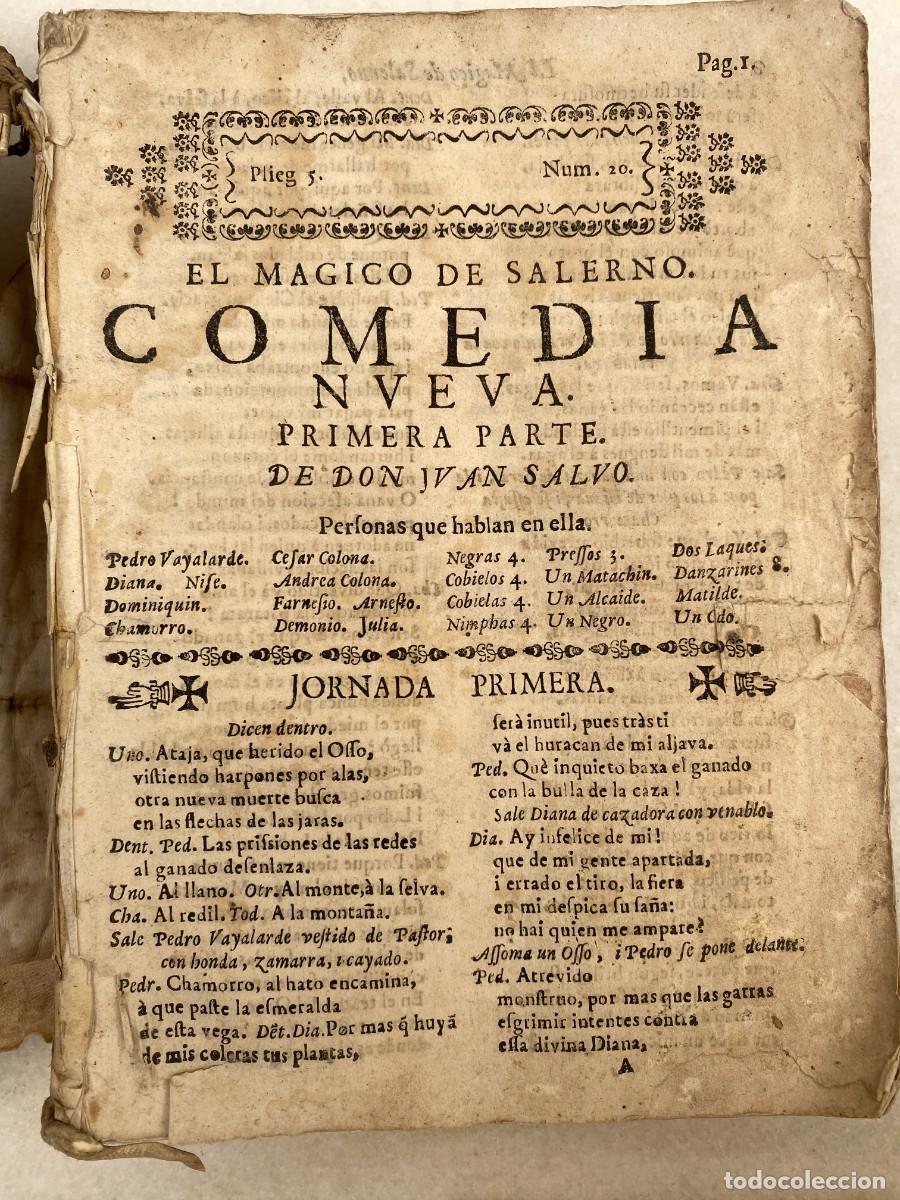 Pag.1.
Plieg 5. Num. 20.
EL MAGICO DE SALERNO.
COMEDIA
NVEVA.
PRIMERA PARTE.
DE DON JVAN SALVO.
Perſonas que hablan en ella.
Pedro Vayalarde. Ceſar Colona. Negras 4. Preſſos 3. Dos Laques.
Diana. Niſe. Andrea Colona. Cobielos 4. Un Matachin. Danzarines 8.
Dominiquin. Farneſio. Arneſto. Cobielas 4. Un Alcaide. Matilde.
Chamorro. Demonio. Julia. Nimphas 4. Un Negro. Un Cdo.
JORNADA PRIMERA.
Dicen dentro.
Uno. Ataja, que herido el Oſſo,
viſtiendo harpones por alas,
otra nueva muerte buſca
en las flechas de las jaras.
Dent. Ped. Las priſſiones de las redes
al ganado deſenlaza.
Uno. Al llano. Otr. Al monte, à la ſelva.
Cha. Al redil. Tod. A la montaña.
Sale Pedro Vayalarde veſtido de Paſtor,
con honda, zamarra, i cayado.
Pedr. Chamorro, al hato encamina,
à que paſte la eſmeralda
de eſta vega. Dẽt. Dia. Por mas q̃ huyã
de mis coleras tus plantas,
ſerà inutil, pues tràs ti
và el huracan de mi aljava.
Ped. Què inquieto baxa el ganado
con la bulla de la caza!
Sale Diana de cazadora con venablo.
Dia. Ay infelice de mi!
que de mi gente apartada,
i errado el tiro, la fiera
en mi deſpica ſu ſaña:
no hai quien me ampare?
Aſſoma un Oſſo, i Pedro ſe pone delante.
Ped. Atrevido
monſtruo, por mas que las garras
eſgrimir intentes contra
eſſa divina Diana,
A
todocoleccion